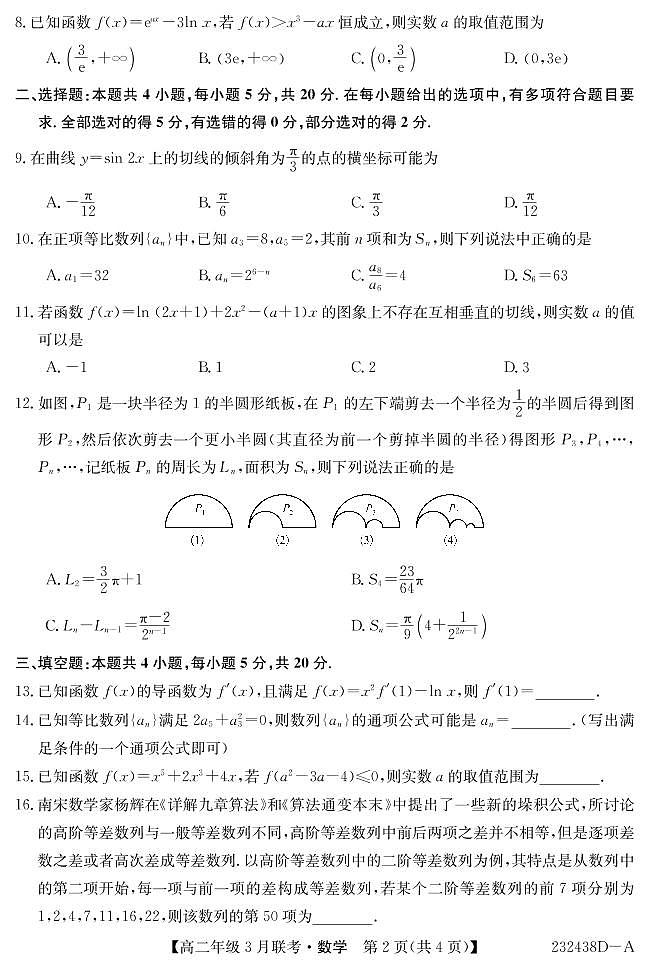 8. 已知函数 f(x)=e^{ax}-3ln x,若 f(x)>x³-ax 恒成立,则实数 a 的取值范围为
A. (3/e,+∞) B. (3e,+∞) C. (0,3/e) D. (0,3e)
二、选择题:本题共 4 小题,每小题 5 分,共 20 分. 在每小题给出的选项中,有多项符合题目要
求. 全部选对的得 5 分,有选错的得 0 分,部分选对的得 2 分.
9. 在曲线 y=sin 2x 上的切线的倾斜角为 π/3 的点的横坐标可能为
A. -π/12 B. π/6 C. π/3 D. π/12
10. 在正项等比数列{aₙ}中,已知 a₃=8,a₅=2,其前 n 项和为 Sₙ,则下列说法中正确的是
A. a₁=32 B. aₙ=2^{6-n} C. a₈/a₆=4 D. S₆=63
11. 若函数 f(x)=ln (2x+1)+2x²-(a+1)x 的图象上不存在互相垂直的切线,则实数 a 的值
可以是
A. -1 B. 1 C. 2 D. 3
12. 如图,P₁ 是一块半径为 1 的半圆形纸板,在 P₁ 的左下端剪去一个半径为 1/2 的半圆后得到图
形 P₂,然后依次剪去一个更小半圆(其直径为前一个剪掉半圆的半径)得图形 P₃,P₄,…,
Pₙ,…,记纸板 Pₙ 的周长为 Lₙ,面积为 Sₙ,则下列说法正确的是
P₁ P₂ P₃ P
(1) (2) (3) (4)
A. L₂=3/2π+1 B. S₄=23/64π
C. Lₙ-Lₙ₋₁=(π-2)/2^{n-1} D. Sₙ=π/9(4+1/2^{2n-1})
三、填空题:本题共 4 小题,每小题 5 分,共 20 分.
13. 已知函数 f(x)的导函数为 f′(x),且满足 f(x)=x²f′(1)-ln x,则 f′(1)=______.
14. 已知等比数列{aₙ}满足 2a₅+a₃²=0,则数列{aₙ}的通项公式可能是 aₙ=______.(写出满
足条件的一个通项公式即可)
15. 已知函数 f(x)=x⁵+2x³+4x,若 f(a²-3a-4)≤0,则实数 a 的取值范围为______.
16. 南宋数学家杨辉在《详解九章算法》和《算法通变本末》中提出了一些新的垛积公式,所讨论
的高阶等差数列与一般等差数列不同,高阶等差数列中前后两项之差并不相等,但是逐项差
数之差或者高次差成等差数列. 以高阶等差数列中的二阶等差数列为例,其特点是从数列中
的第二项开始,每一项与前一项的差构成等差数列,若某个二阶等差数列的前 7 项分别为
1,2,4,7,11,16,22,则该数列的第 50 项为______.
【高二年级 3 月联考·数学 第 2 页(共 4 页)】 232438D-A